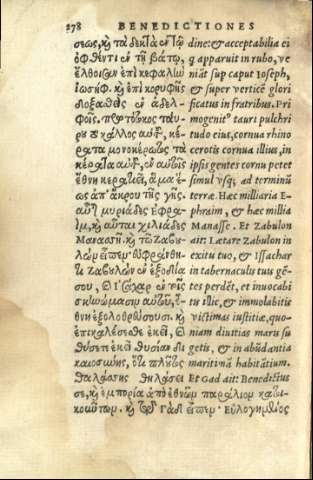 278 BENEDICTIONES
σεως, καὶ τὰ δεκτὰ ἐν τῷ
ὀφθέντι ἐν τῇ βάτῳ,
ἔλθοισαν ἐπὶ κεφαλὼ
ἰωσὴφ. καὶ ἐπὶ κορυφῆς
δοξασθεὶς ἐν ἀδελ-
φοῖς. πρωτότοκος ταύ-
ρου κάλλος αὐτοῦ, κέ-
ρατα μονοκέρωτος τὰ
κέρατα αὐτοῦ, ἐν αὐτοῖς
ἔθνη κερατιεῖ, ἅμα ἕ-
ως ἀπ' ἄκρου τῆς γῆς.
αὗται μυριάδες ἐφρα-
ΐμ, καὶ αὗται χιλιάδες
Μανασσῆ. καὶ τῷ Ζαβου-
λὼν εἶπεν· εὐφράνθη-
τι Ζαβυλὼν ἐν ἐξοδίᾳ
σου, καὶ Ἰσάχαρ ἐν τοῖς
σκηνώμασιν αὐτοῦ, ἔ-
θνη ἐξολοθρεύσουσι. καὶ
ἐπικαλέσεσθε ἐκεῖ, καὶ
θύσετε ἐκεῖ θυσίαν δι
καιοσύνης, ὅτι πλοῦτος
θαλάσσης θηλάσει
σε, καὶ ἐμπορία ἀπὸ ἐθνῶν παράλιον κατοι-
κούντων. καὶ τῷ Γὰδ εἶπεν· Εὐλογημένος
dine: & acceptabilia ei
q apparuit in rubo, ve
niāt sup caput Ioseph,
& super verticē glori
ficatus in fratribus. Pri
mogeniti tauri pulchri
tudo eius, cornua rhino
cerotis cornua illius, in
ipsis gentes cornu petet
simul vsq; ad terminū
terræ. Hæc milliaria E-
phraim, & hæc millia
Manasse. Et Zabulon
ait: Lætare Zabulon in
exitu tuo, & Issachar
in tabernaculis tuis gē-
tes perdēt, et inuocabi
tis illic, & immolabitis
victimas iustitiæ, quo-
niam diuitias maris su
getis, & in abūdantia
maritimā habitātium.
Et Gad ait: Benedictus